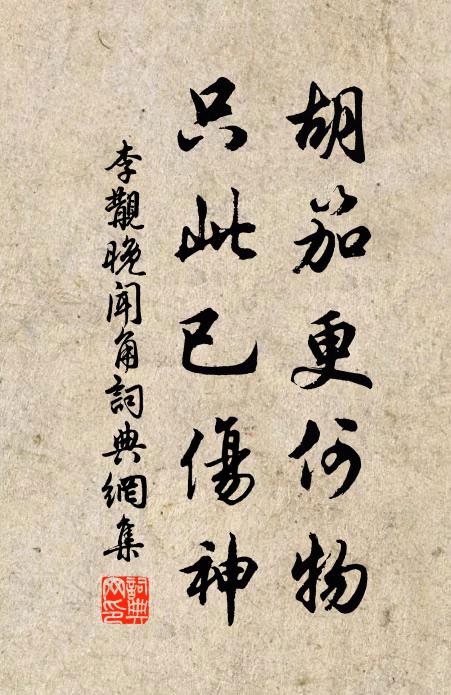 胡笳更何物
只此已傷神
李覯晚聞角詞典網集
詞典
網印